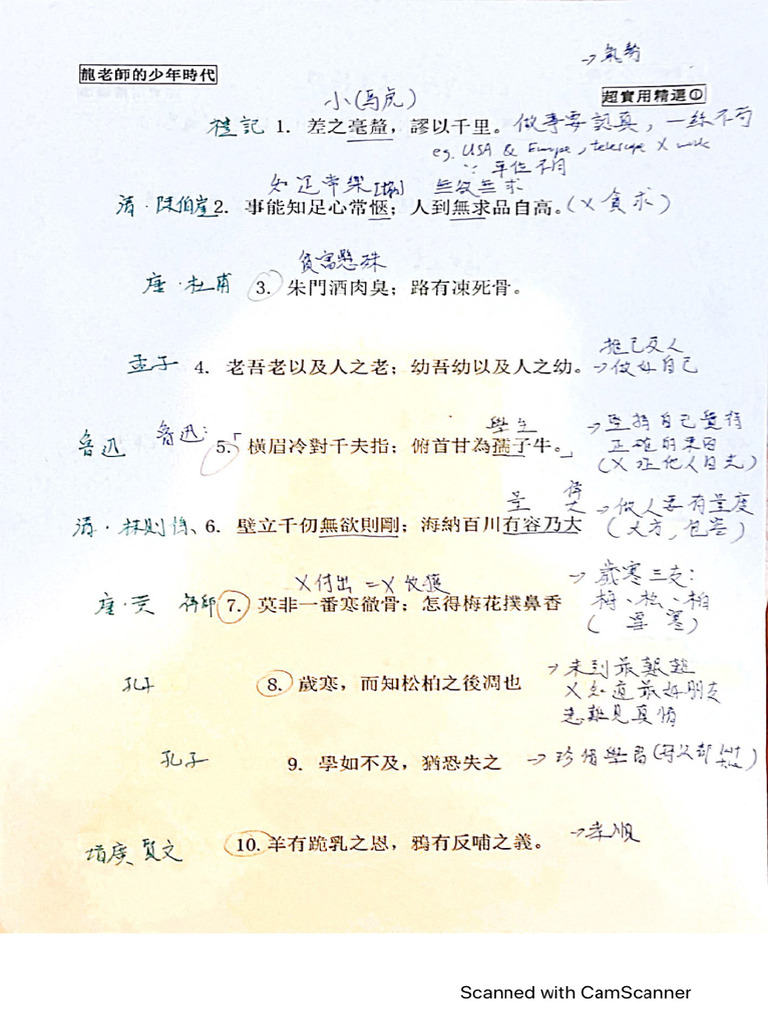 →氣勢
龍老師的少年時代
超實用精選①
小(馬虎)
禮記 1. 差之毫釐，謬以千里。做事要認真，一絲不苟
eg. USA & Europe, telescope X work
∵ 單位不同
知足常樂 無欲無求
清·陳伯崖 2. 事能知足心常愜；人到無求品自高。(X 貪求)
貧富懸殊
唐·杜甫 3. 朱門酒肉臭；路有凍死骨。
推己及人
孟子 4. 老吾老以及人之老；幼吾幼以及人之幼。→做好自己
學生 →堅持自己覺得
魯迅 魯迅： 5.「橫眉冷對千夫指；俯首甘為孺子牛。」 正確的東西
(X 理他人目光)
清·林則徐、 6. 壁立千仞無欲則剛；海納百川有容乃大 →做人要有量度
(大方，包容)
X付出 = X收穫 →歲寒三友：
唐·黃 禪師 7. 莫非一番寒徹骨；怎得梅花撲鼻香 梅、松、柏
→未到最艱難
孔子 8. 歲寒，而知松柏之後凋也 X知道最好朋友
患難見真情
孔子 9. 學如不及，猶恐失之 →珍惜學習
增廣賢文 10. 羊有跪乳之恩，鴉有反哺之義。 →孝順
Scanned with CamScanner